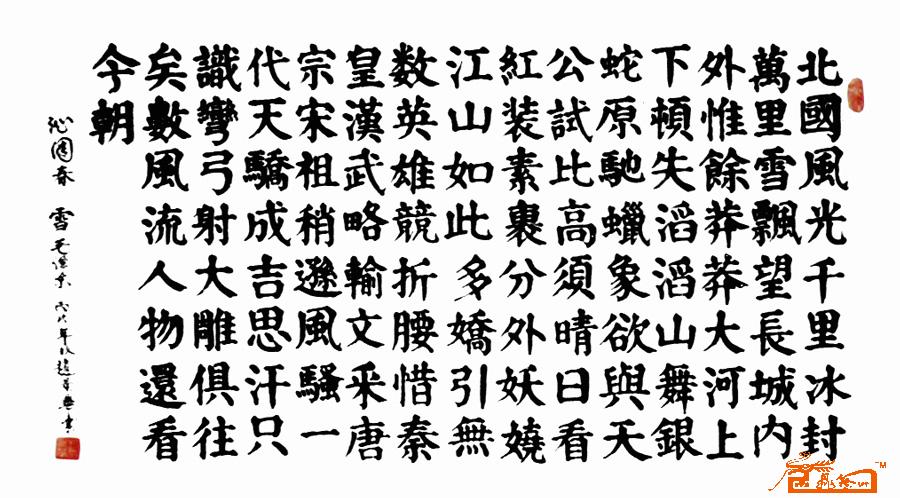 北國風光千里冰封
萬里雪飄望長城内
外惟餘莽莽大河上
下頓失滔滔山舞銀
蛇原馳蠟象欲與天
公試比高須晴日看
紅装素裹分外妖嬈
江山如此多嬌引無
数英雄競折腰惜秦
皇漢武略輸文采唐
宗宋祖稍遜風騷一
代天驕成吉思汗只
識彎弓射大雕俱往
矣數風流人物還看
今朝
沁園春 雪 毛泽东 年 書